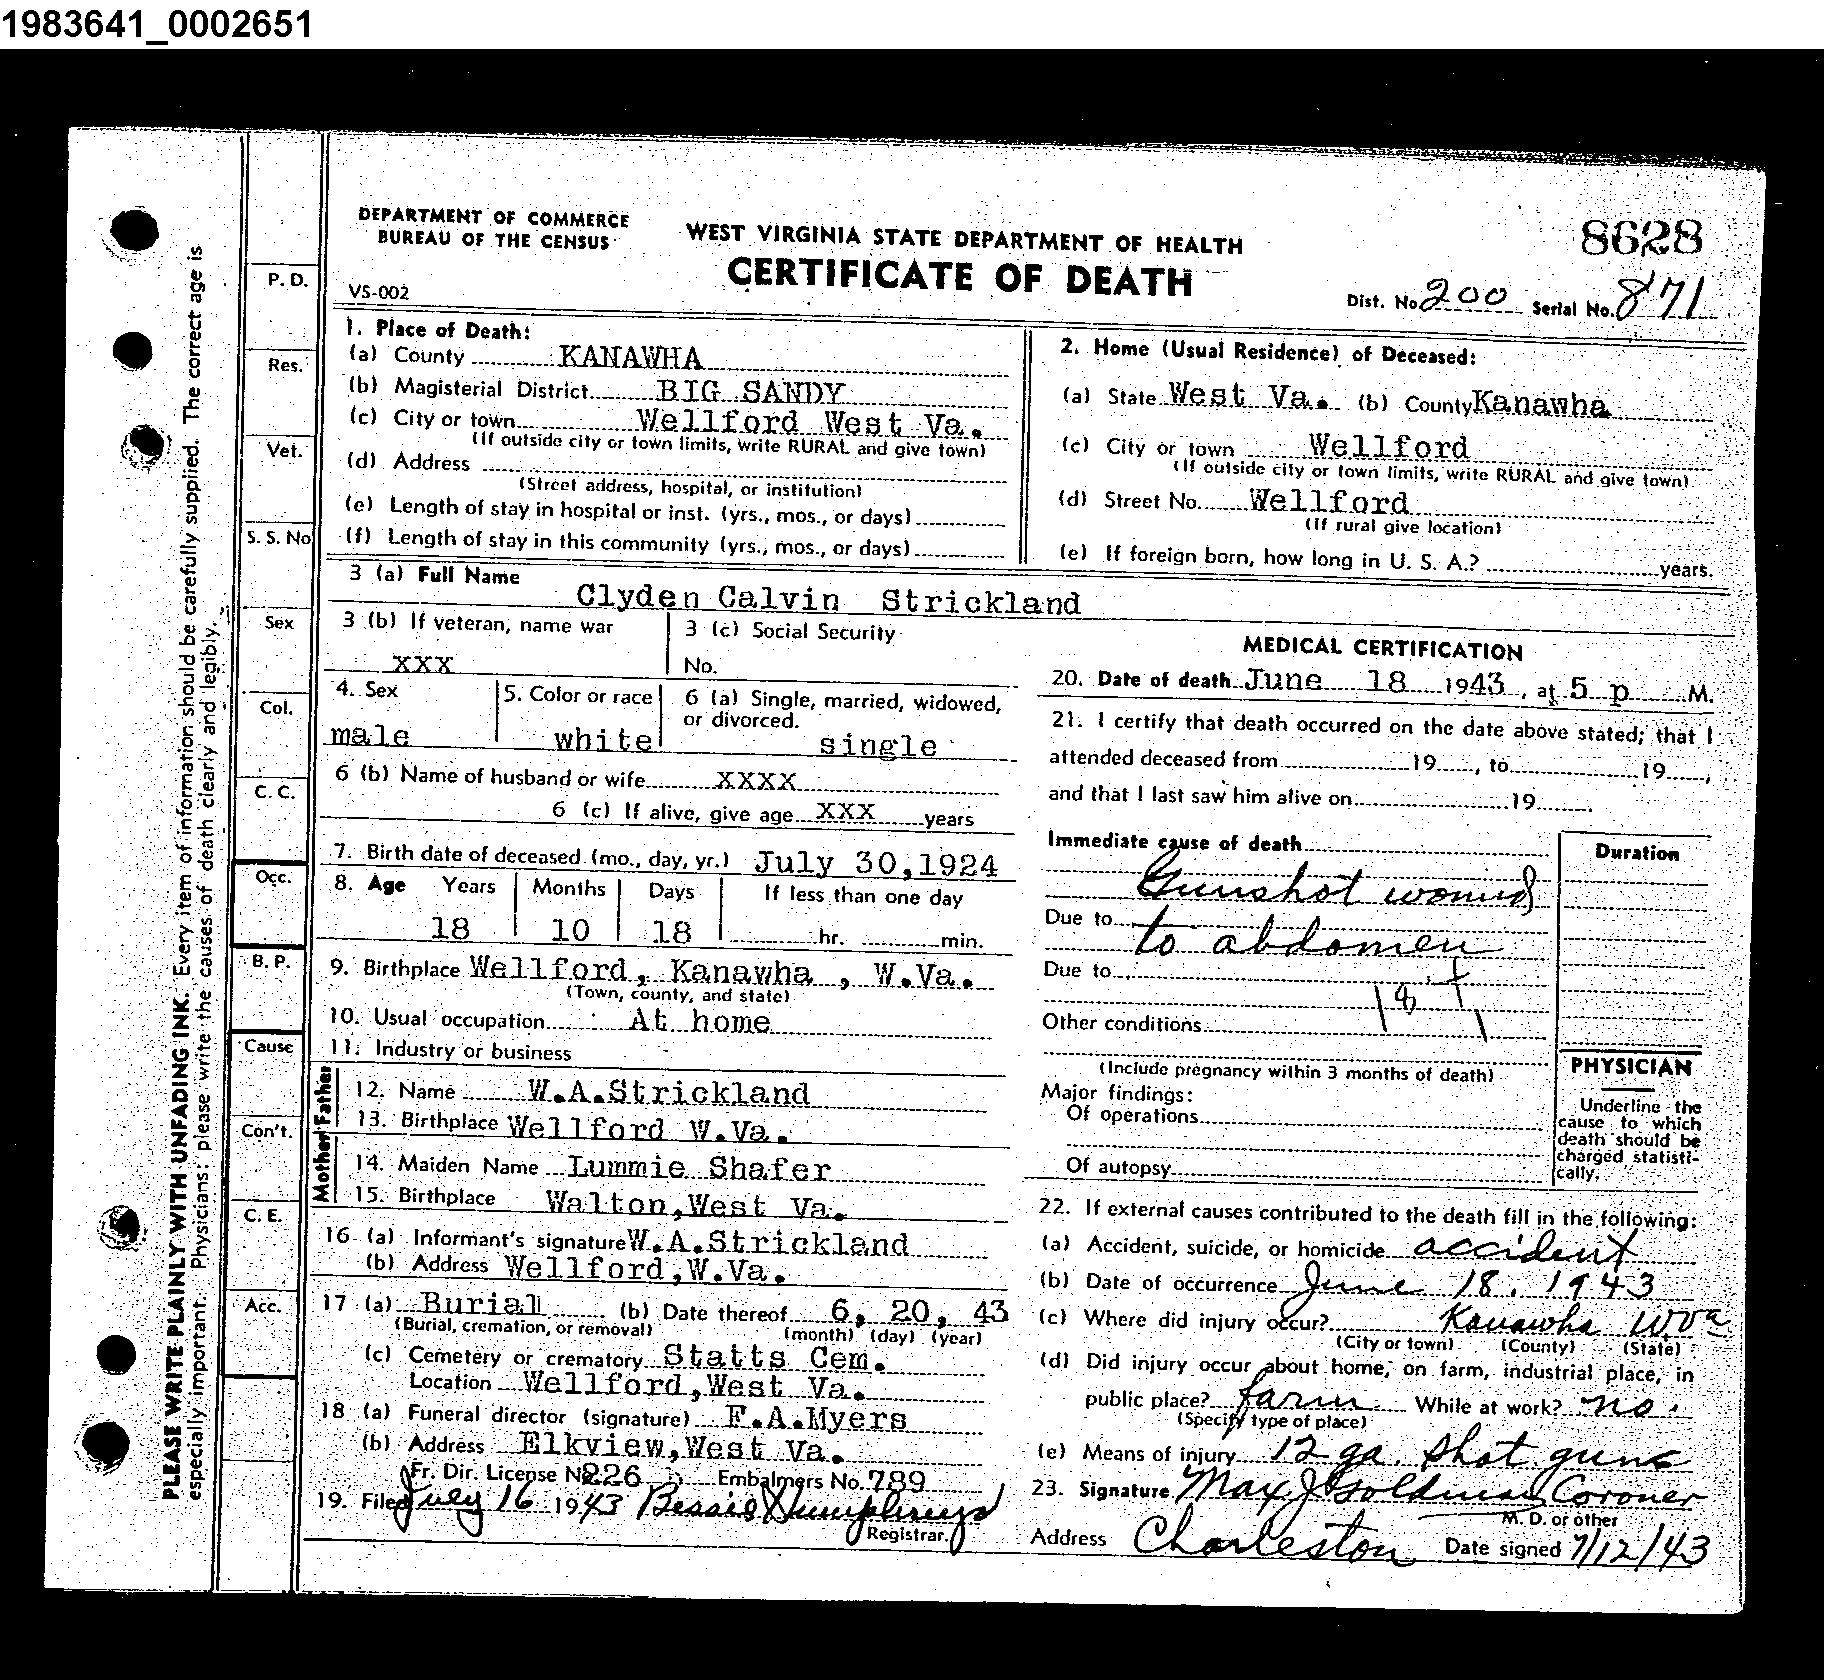 1983641_0002651
PLEASE WRITE PLAINLY WITH UNFADING INK. Every item of information should be carefully supplied. The correct age is
especially important. Physicians: please write the causes of death clearly and legibly.
P. D.
Res.
Vet.
S. S. No
Sex
Col.
C. C.
Occ.
B. P.
Cause
Con't.
C. E.
Acc.
DEPARTMENT OF COMMERCE
BUREAU OF THE CENSUS
VS-002
WEST VIRGINIA STATE DEPARTMENT OF HEALTH
CERTIFICATE OF DEATH
8628
Dist. No. 200 Serial No. 871
1. Place of Death:
(a) County KANAWHA
(b) Magisterial District BIG SANDY
(c) City or town Wellford West Va.
(If outside city or town limits, write RURAL and give town)
(d) Address
(Street address, hospital, or institution)
(e) Length of stay in hospital or inst. (yrs., mos., or days)
(f) Length of stay in this community (yrs., mos., or days)
2. Home (Usual Residence) of Deceased:
(a) State West Va. (b) County Kanawha
(c) City or town Wellford
(If outside city or town limits, write RURAL and give town)
(d) Street No. Wellford
(If rural give location)
(e) If foreign born, how long in U. S. A.? years.
3 (a) Full Name
Clyden Calvin Strickland
3 (b) If veteran, name war
XXX
3 (c) Social Security
No.
4. Sex
male
5. Color or race
white
6 (a) Single, married, widowed,
or divorced.
single
6 (b) Name of husband or wife XXXX
6 (c) If alive, give age XXX years
7. Birth date of deceased (mo., day, yr.) July 30,1924
8. Age Years Months Days If less than one day
18 10 18 hr. min.
9. Birthplace Wellford, Kanawha , W.Va.
(Town, county, and state)
10. Usual occupation At home
11. Industry or business
Father
12. Name W.A.Strickland
13. Birthplace Wellford W.Va.
Mother
14. Maiden Name Lummie Shafer
15. Birthplace Walton,West Va.
16 (a) Informant's signature W.A.Strickland
(b) Address Wellford,W.Va.
17 (a) Burial (b) Date thereof 6, 20, 43
(Burial, cremation, or removal) (month) (day) (year)
(c) Cemetery or crematory Statts Cem.
Location Wellford,West Va.
18 (a) Funeral director (signature) F.A.Myers
(b) Address Elkview,West Va.
Fr. Dir. License No. 226 Embalmers No. 789
19. Filed July 16 1943 Bessie Humphreys
Registrar.
MEDICAL CERTIFICATION
20. Date of death June 18 1943, at 5 p M.
21. I certify that death occurred on the date above stated; that I
attended deceased from 19 , to 19 ,
and that I last saw him alive on 19 .
Immediate cause of death
Gunshot wound
Due to to abdomen
Due to
Other conditions
(Include pregnancy within 3 months of death)
Major findings:
Of operations
Of autopsy
Duration
PHYSICIAN
Underline the
cause to which
death should be
charged statisti-
cally.
22. If external causes contributed to the death fill in the following:
(a) Accident, suicide, or homicide accident
(b) Date of occurrence June 18, 1943
(c) Where did injury occur? Kanawha W Va
(City or town) (County) (State)
(d) Did injury occur about home, on farm, industrial place, in
public place? farm While at work? no.
(Specify type of place)
(e) Means of injury 12 ga. shot gun
23. Signature Max J Goldman Coroner
M. D. or other
Address Charleston Date signed 7/12/43